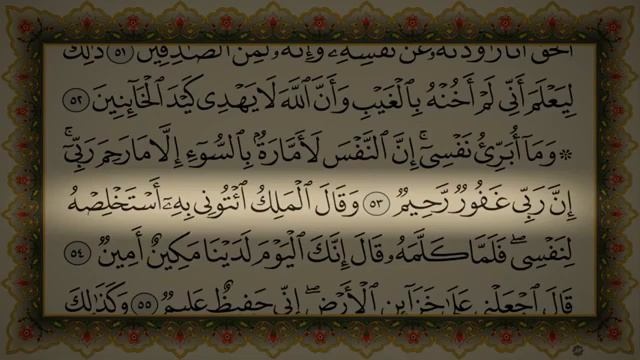 الْحَقُّ أَنَا۠ رَٰوَدتُّهُۥ عَن نَّفْسِهِۦ وَإِنَّهُۥ لَمِنَ ٱلصَّٰدِقِينَ ٥١ ذَٰلِكَ
لِيَعْلَمَ أَنِّى لَمْ أَخُنْهُ بِٱلْغَيْبِ وَأَنَّ ٱللَّهَ لَا يَهْدِى كَيْدَ ٱلْخَآئِنِينَ ٥٢
۞ وَمَآ أُبَرِّئُ نَفْسِىٓ ۚ إِنَّ ٱلنَّفْسَ لَأَمَّارَةٌۢ بِٱلسُّوٓءِ إِلَّا مَا رَحِمَ رَبِّىٓ ۚ
إِنَّ رَبِّى غَفُورٌ رَّحِيمٌ ٥٣ وَقَالَ ٱلْمَلِكُ ٱئْتُونِى بِهِۦٓ أَسْتَخْلِصْهُ
لِنَفْسِى ۖ فَلَمَّا كَلَّمَهُۥ قَالَ إِنَّكَ ٱلْيَوْمَ لَدَيْنَا مَكِينٌ أَمِينٌ ٥٤
قَالَ ٱجْعَلْنِى عَلَىٰ خَزَآئِنِ ٱلْأَرْضِ ۖ إِنِّى حَفِيظٌ عَلِيمٌ ٥٥ وَكَذَٰلِكَ